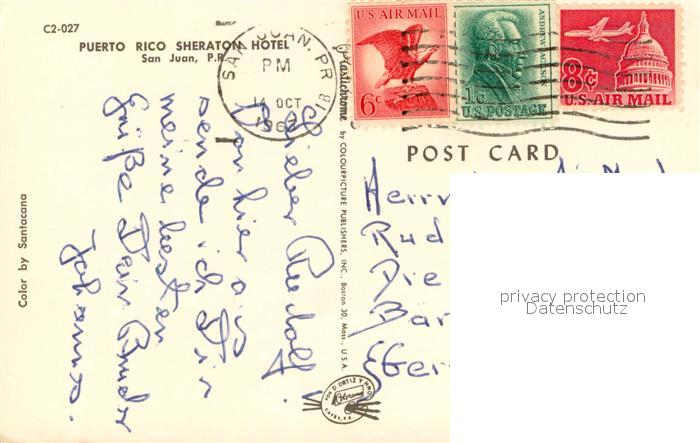 C2-027
PUERTO RICO SHERATON HOTEL
San Juan, P.R.
SAN JUAN, PR
PM
14 OCT
U.S. AIR MAIL
6¢
ANDREW JACKSON
1¢
U.S. POSTAGE
8¢
U.S. AIR MAIL
POST CARD
Plastichrome by COLOURPICTURE PUBLISHERS, INC., Boston 30, Mass., U.S.A.
Color by Santacana
Lieber Rudolf!
Von hier aus
sende ich Dir
meine besten
Grüße Dein Bruder
Johannes.
Herrn
Rud
Die
Bar
Ger
privacy protection
Datenschutz
POR D ORTIZ Y HNO
CAYEY, P.R.